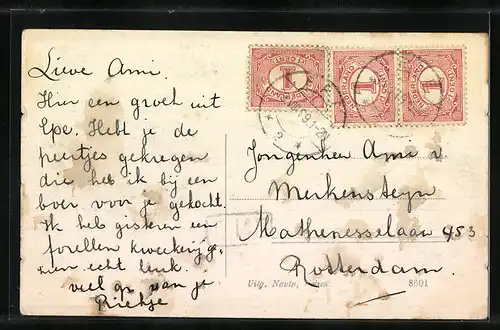 Lieve Ami.
Hier een groet uit
Epe. Hebt je de
peertjes gekregen
die heb ik bij een
boer voor je gekocht.
Ik heb gisteren een
forellen kweekerij ge-
zien echt leuk.
veel gr. van je
Rietje
NEDERLAND
1
CENT
NEDERLAND
1
CENT
NEDERLAND
1
CENT
Jongenheer Ami v.
Merkensteyn
Mathenesselaan 453
Rotterdam.
Uitg. Nauta,
8601